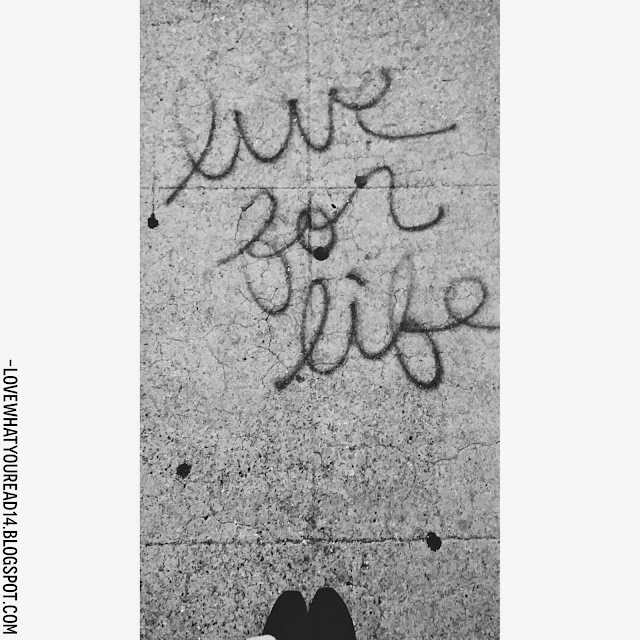 live
for
life
-LOVEWHATYOUREAD14.BLOGSPOT.COM